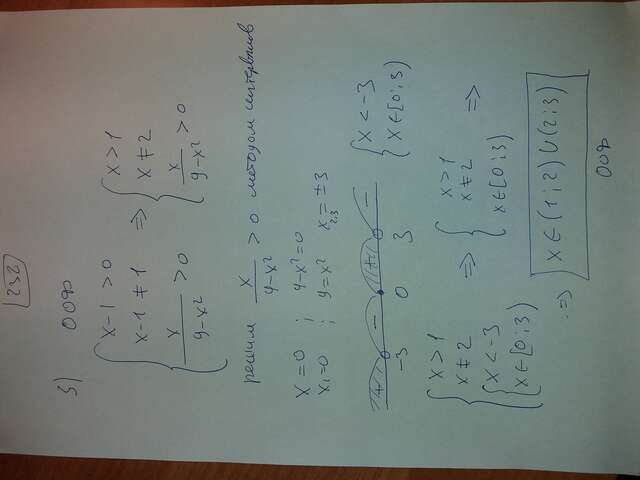 232
3) ООФ
{ x-1 > 0
x-1 ≠ 1
x/(9-x²) > 0 => { x > 1
x ≠ 2
x/(9-x²) > 0
решим x/(9-x²) > 0 методом интервалов
x = 0 ; 9-x² = 0
x₁ = 0 ; 9 = x² x₂,₃ = ±3
+ - + -
-3 0 3
{ x < -3
x ∈ [0;3)
{ x > 1
x ≠ 2
{ x < -3
x ∈ [0;3) => { x > 1
x ≠ 2
x ∈ [0;3) =>
=> x ∈ (1;2) ∪ (2;3)
ООФ